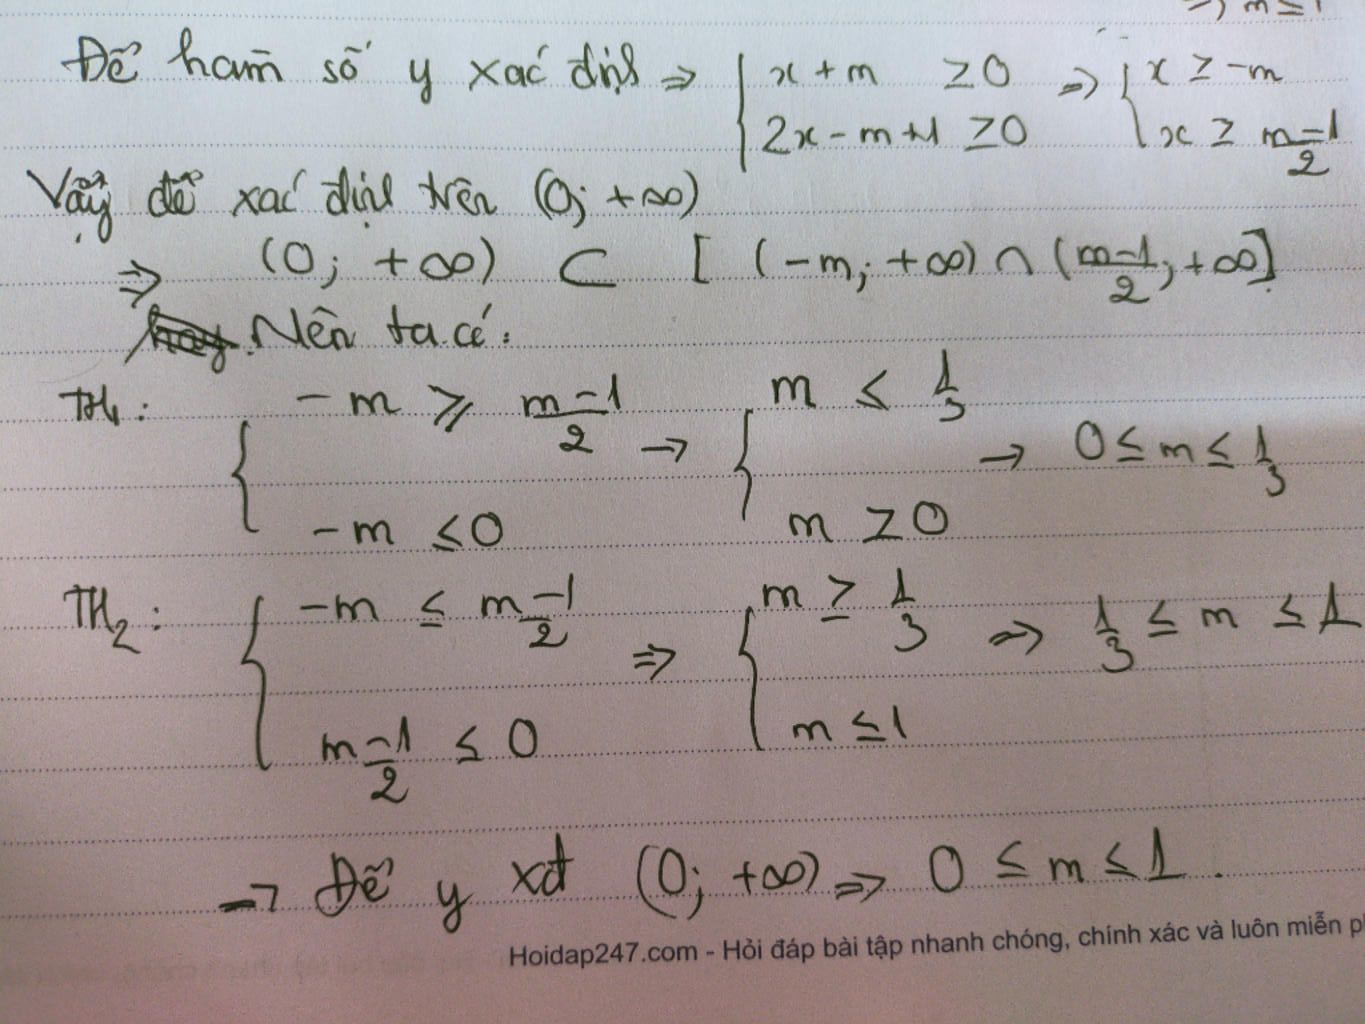 => m ≤ 1
Để hàm số y xác định => { x + m ≥ 0 => { x ≥ -m
2x - m + 1 ≥ 0 x ≥ m-1/2
Vậy để xác định trên (0; +∞)
=> (0; +∞) ⊂ [ (-m; +∞) ∩ (m-1/2; +∞]
Nên ta có:
TH1: { -m ≥ m-1/2 → { m ≤ 1/3 → 0 ≤ m ≤ 1/3
-m ≤ 0 m ≥ 0
TH2: { -m ≤ m-1/2 => { m ≥ 1/3 => 1/3 ≤ m ≤ 1
m-1/2 ≤ 0 m ≤ 1
=> Để y xđ (0; +∞) => 0 ≤ m ≤ 1.
Hoidap247.com - Hỏi đáp bài tập nhanh chóng, chính xác và luôn miễn p